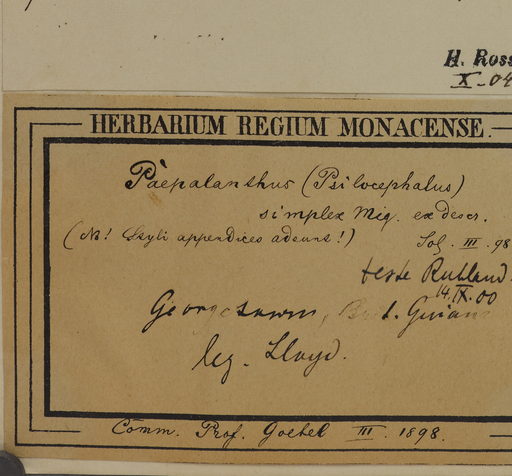 H. Ross
X-04
HERBARIUM REGIUM MONACENSE.
Paepalanthus (Psilocephalus)
simplex Miq. ex descr.
(NB! Styli appendices adsunt!) Sol. III. 98
teste Ruhland.
14.IX.00
Georgetown, Brit. Guiana
leg. Lloyd.
Comm. Prof. Goebel III. 1898.